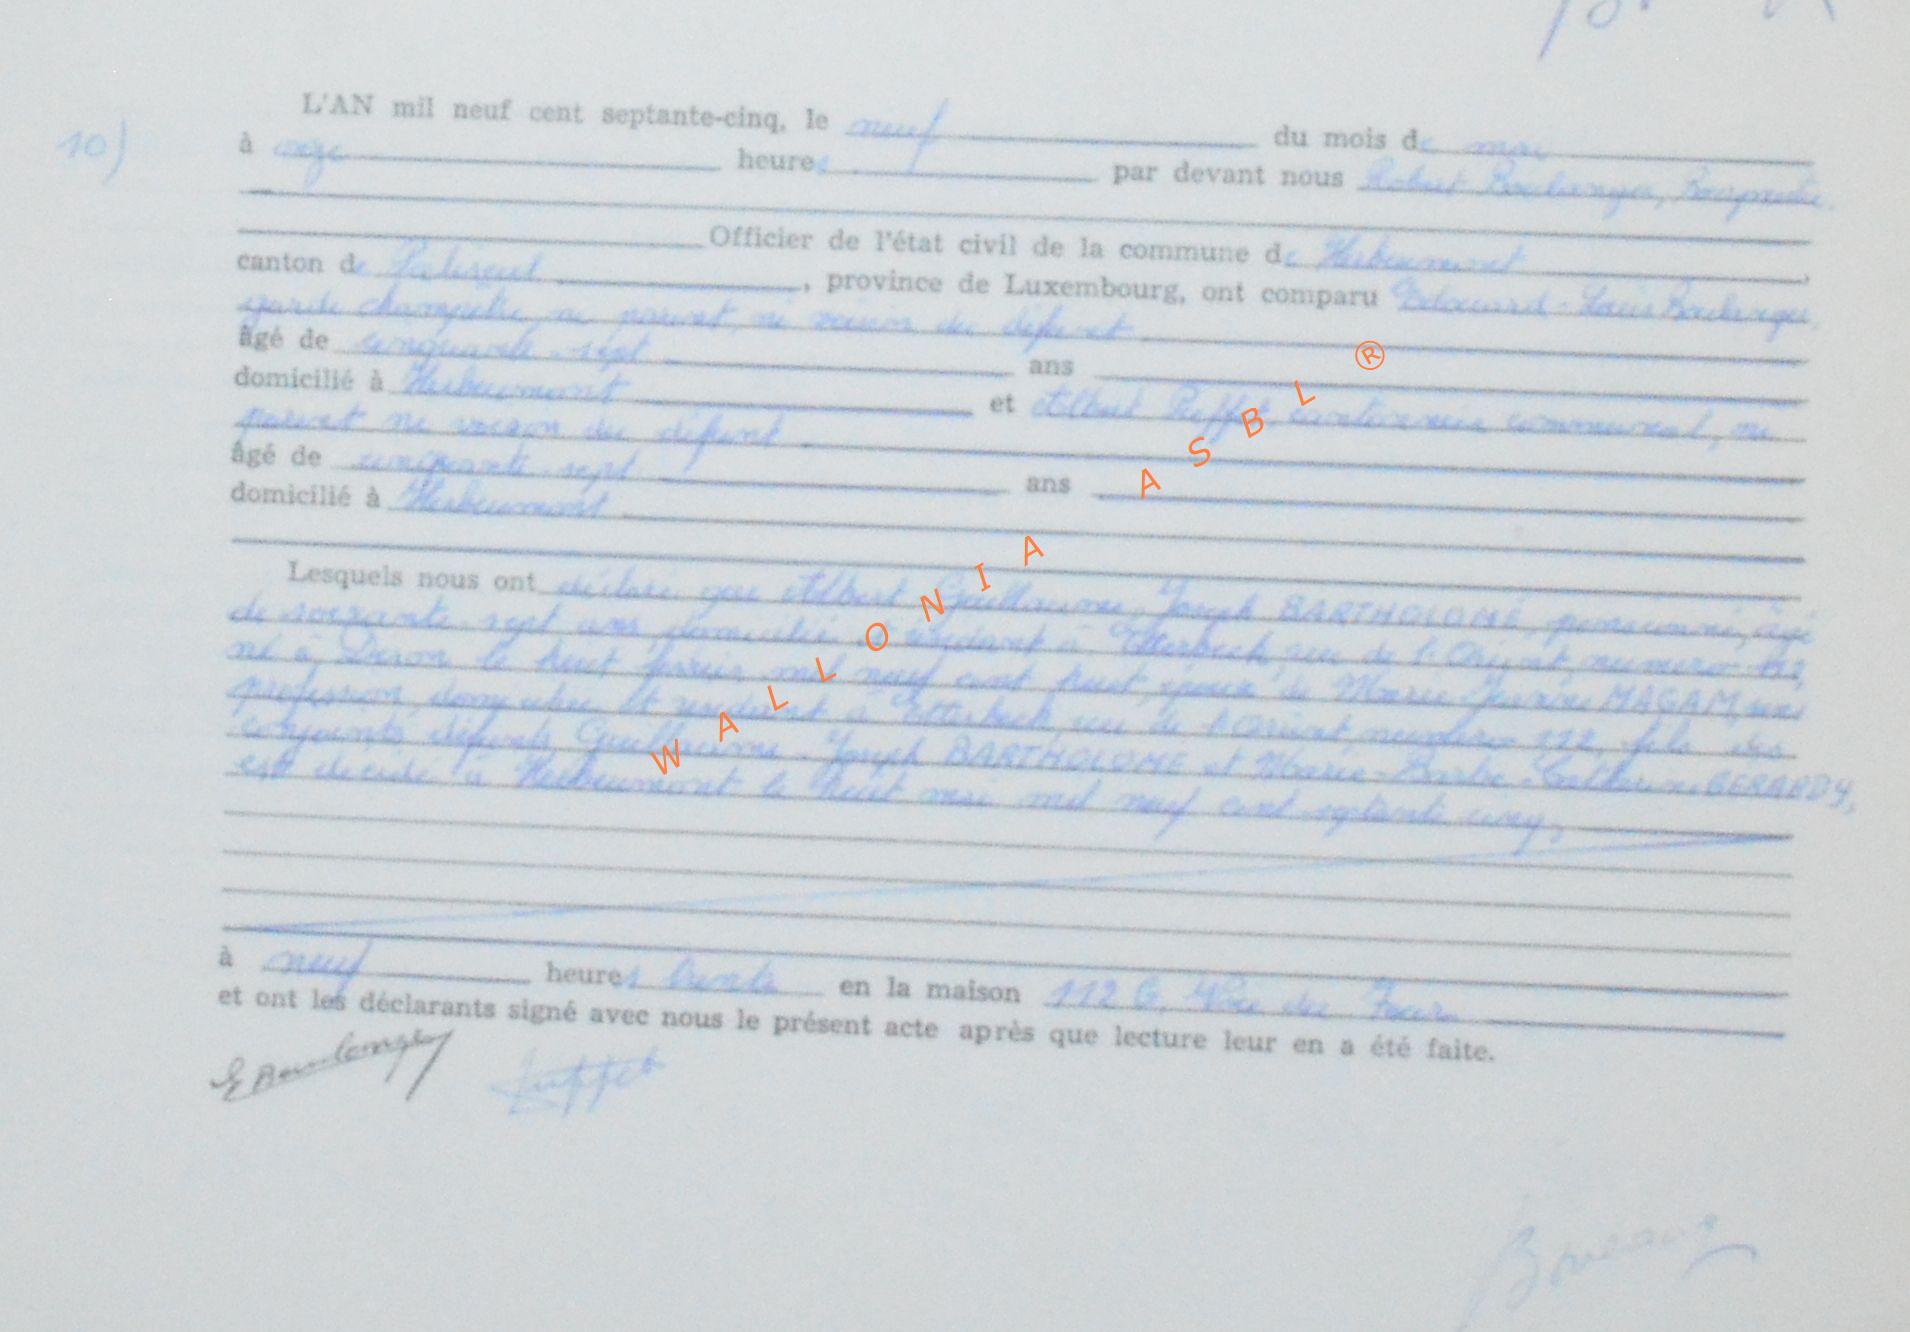 10)
L'AN mil neuf cent septante-cinq, le neuf du mois de mai
à onze heures par devant nous Robert Boulanger, Bourgmestre
Officier de l'état civil de la commune de Herbeumont
canton de Paliseul, province de Luxembourg, ont comparu Edouard-Louis Boulanger
garde champêtre, ni parent, ni voisin du défunt
âgé de cinquante-sept ans
domicilié à Herbeumont et Albert cantonnier communal, ni
parent ni voisin du défunt
âgé de cinquante-sept ans
domicilié à Herbeumont
Lesquels nous ont déclaré que Albert Guillaume Joseph BARTHOLOMÉ, pensionné, âgé
de soixante-sept ans domicilié et résidant à Etterbeek, rue de l'Orient, numéro 112,
né à le huit février mil neuf cent huit, époux de Marie MAGAM, sans
profession, domiciliée et résidant à Etterbeek, rue de l'Orient, numéro 112, fils des
conjoints défunts Guillaume-Joseph BARTHOLOMÉ et Marie-Barbe-Catherine GERARDY,
est décédé à Herbeumont le huit mai mil neuf cent septante cinq,
à neuf heures trente en la maison 112 G, du Four
et ont les déclarants signé avec nous le présent acte après que lecture leur en a été faite.
E Boulanger
WALLONIA ASBL ®